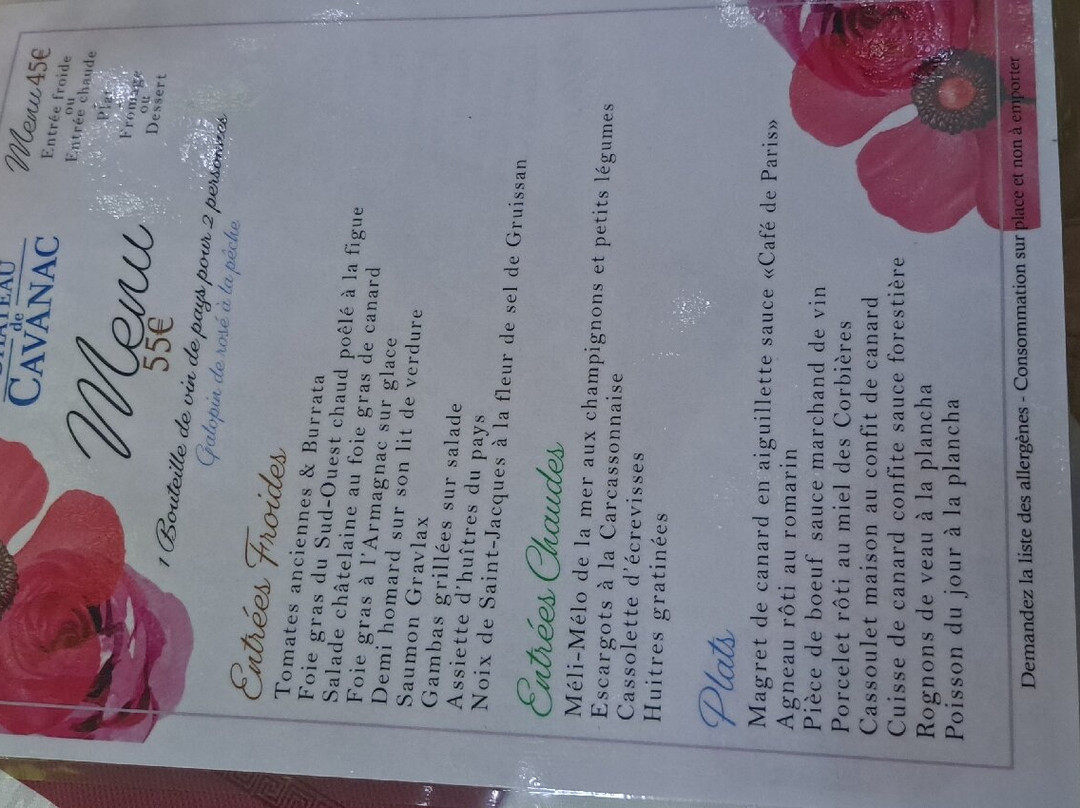 CHÂTEAU
de
CAVANAC
Menu 45€
Entrée froide
ou
Entrée chaude
Plat
Fromage
ou
Dessert
Menu
55€
1 Bouteille de vin de pays pour 2 personnes
Galopin de rosé à la pêche
Entrées Froides
Tomates anciennes & Burrata
Foie gras du Sud-Ouest chaud poêlé à la figue
Salade châtelaine au foie gras de canard
Foie gras à l'Armagnac sur glace
Demi homard sur son lit de verdure
Saumon Gravlax
Gambas grillées sur salade
Assiette d'huîtres du pays
Noix de Saint-Jacques à la fleur de sel de Gruissan
Entrées Chaudes
Méli-Mélo de la mer aux champignons et petits légumes
Escargots à la Carcassonnaise
Cassolette d'écrevisses
Huitres gratinées
Plats
Magret de canard en aiguillette sauce «Café de Paris»
Agneau rôti au romarin
Pièce de boeuf sauce marchand de vin
Porcelet rôti au miel des Corbières
Cassoulet maison au confit de canard
Cuisse de canard confite sauce forestière
Rognons de veau à la plancha
Poisson du jour à la plancha
Demandez la liste des allergènes - Consommation sur place et non à emporter